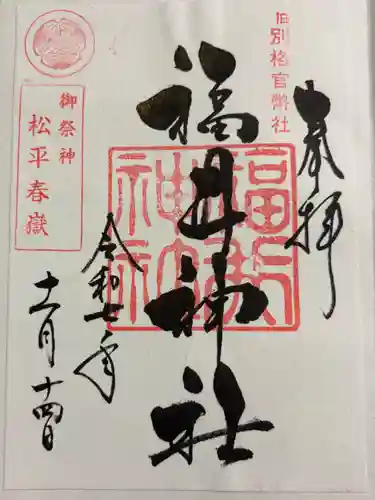 旧別格官幣社
奉拝
福井神社
令和七年
十一月十四日
御祭神
松平春嶽